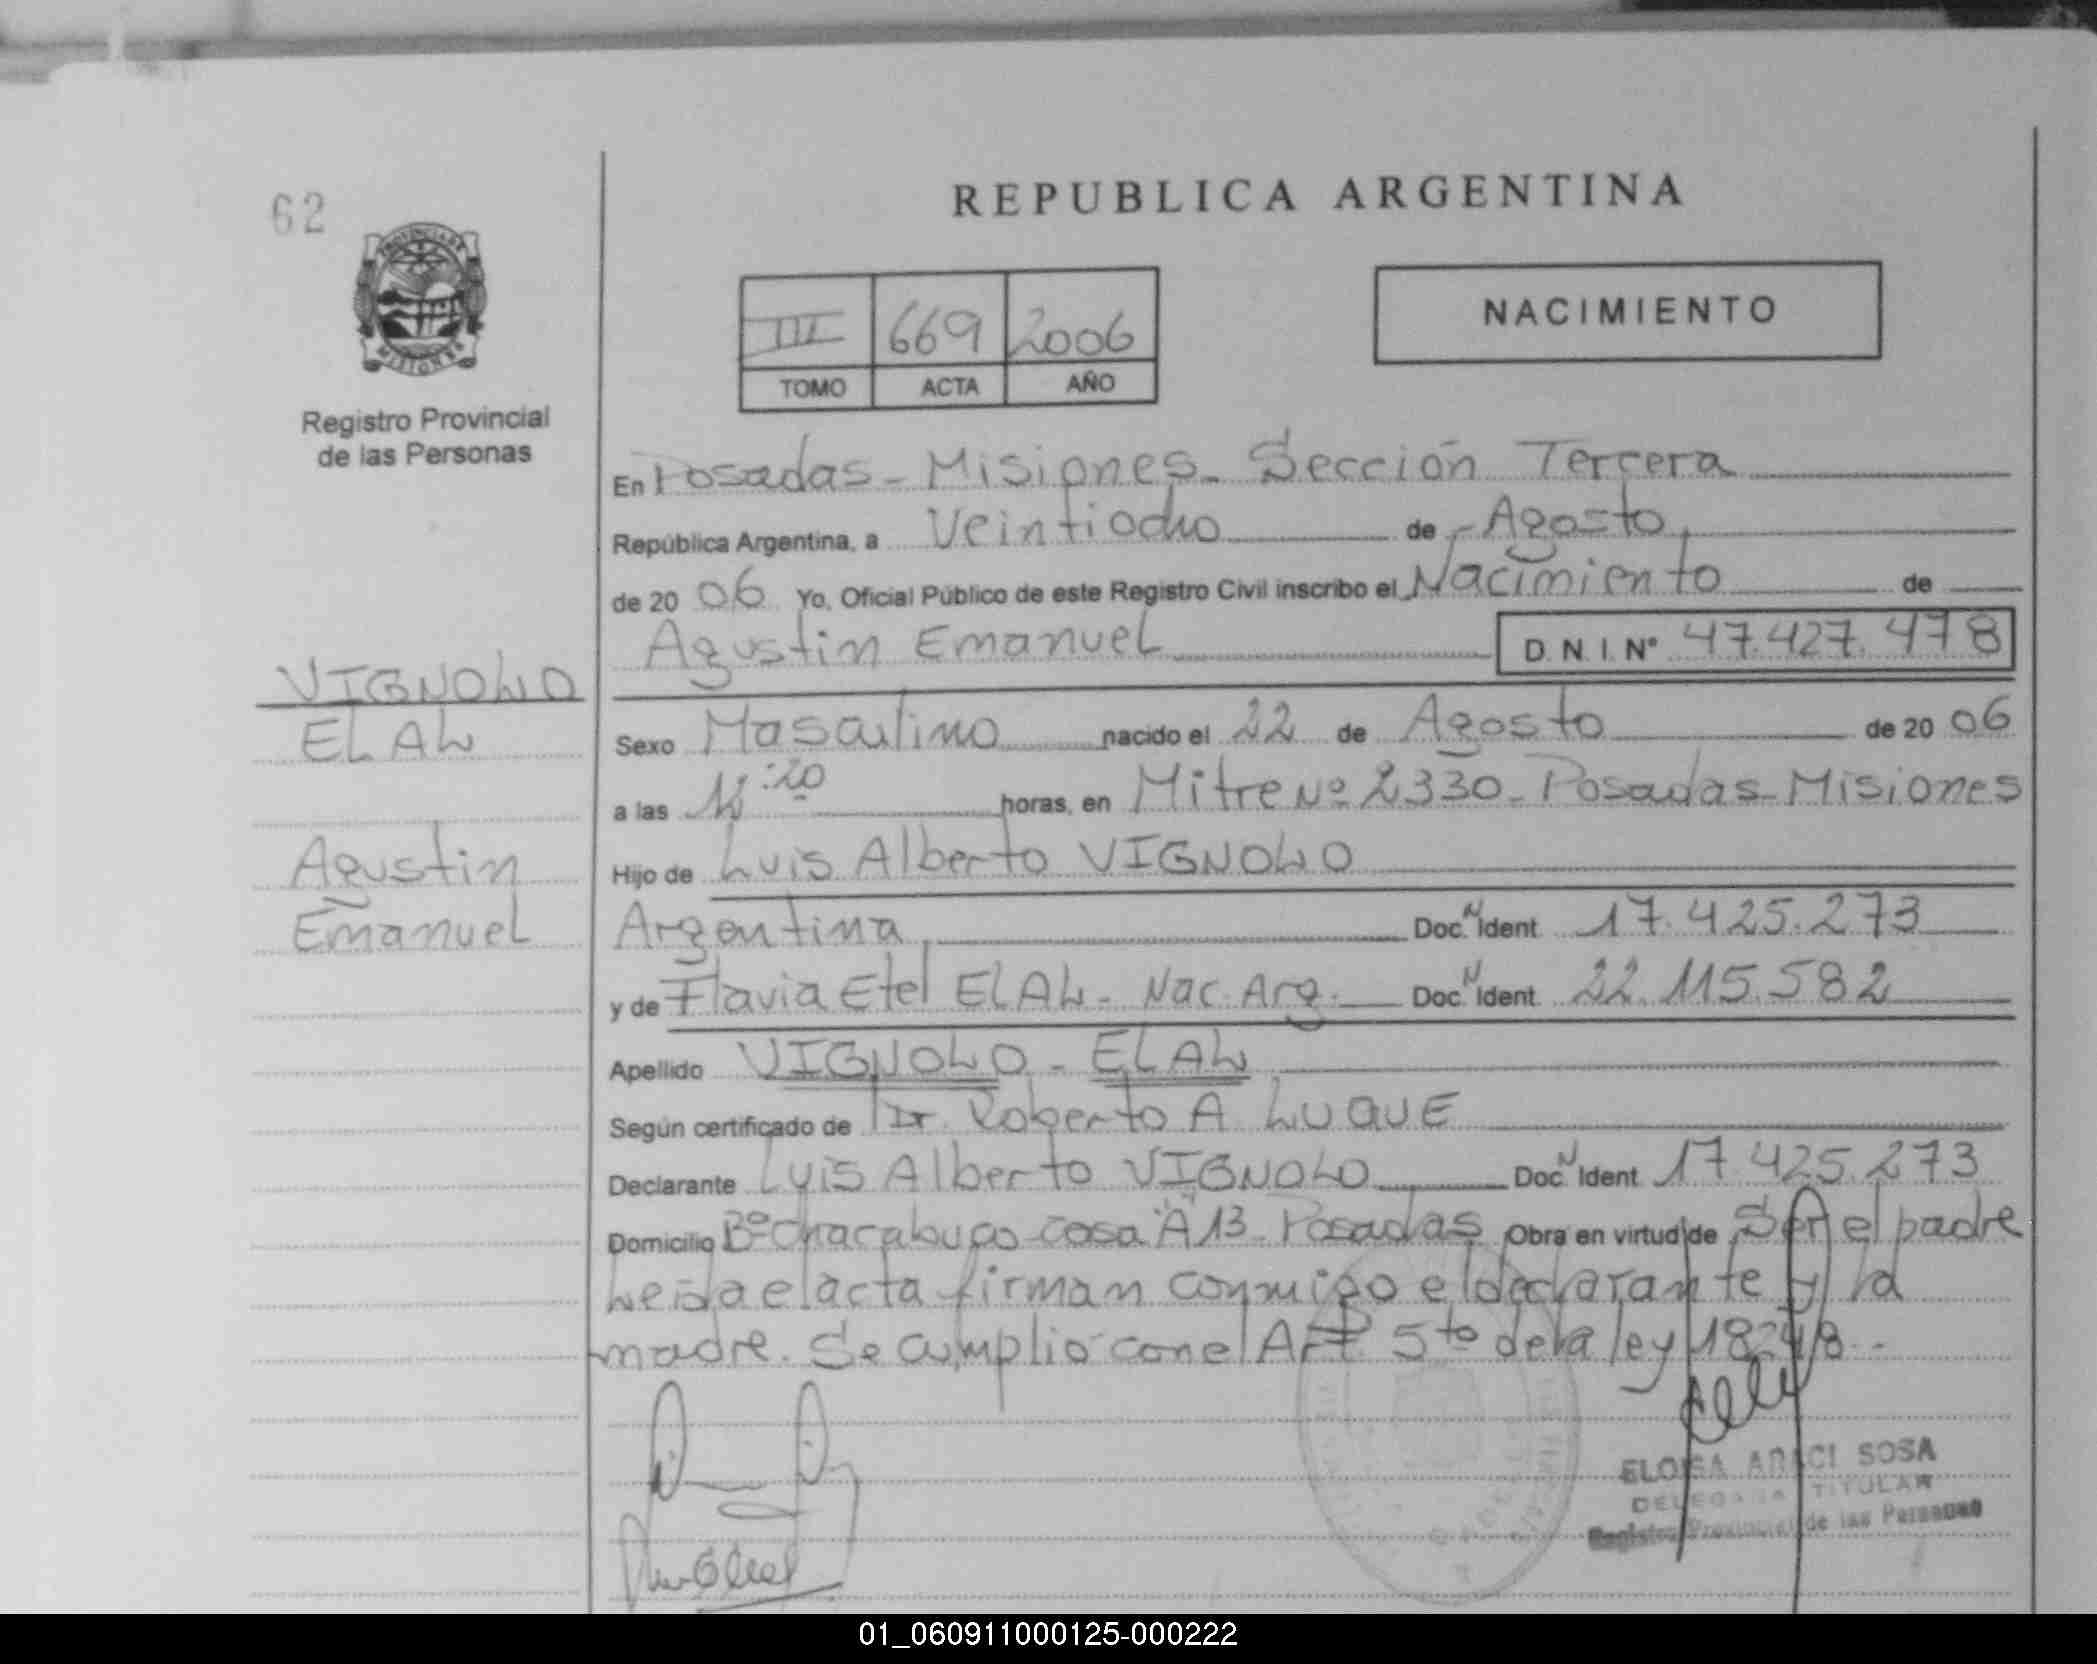 62
PROVINCIA DE
MISIONES
Registro Provincial
de las Personas
REPUBLICA ARGENTINA
III 669 2006
TOMO ACTA AÑO
NACIMIENTO
En Posadas - Misiones - Sección Tercera
República Argentina, a Veintiocho de Agosto
de 20 06 Yo, Oficial Público de este Registro Civil inscribo el Nacimiento de
Agustin Emanuel D.N.I. Nº 47.427.478
VIGNOLO
ELAL
Agustin
Emanuel
Sexo Masculino nacido el 22 de Agosto de 20 06
a las horas, en Mitre Nº 2330 - Posadas - Misiones
Hijo de Luis Alberto VIGNOLO
Argentina Doc. N Ident 17.425.273
y de Flavia Etel ELAL - Nac. Arg. Doc. N Ident 22.115.582
Apellido VIGNOLO - ELAL
Según certificado de Dr. Roberto A LUQUE
Declarante Luis Alberto VIGNOLO Doc N Ident 17.425.273
Domicilio Bº Chacabuco casa "A" 13 - Posadas Obra en virtud de Ser el padre
Leida el acta firman conmigo el declarante y la
madre. Se cumplió con el Art. 5to de la ley 18248.-
ELOISA ARACI SOSA
DELEGADA TITULAR
Registro Provincial de las Personas
01_060911000125-000222